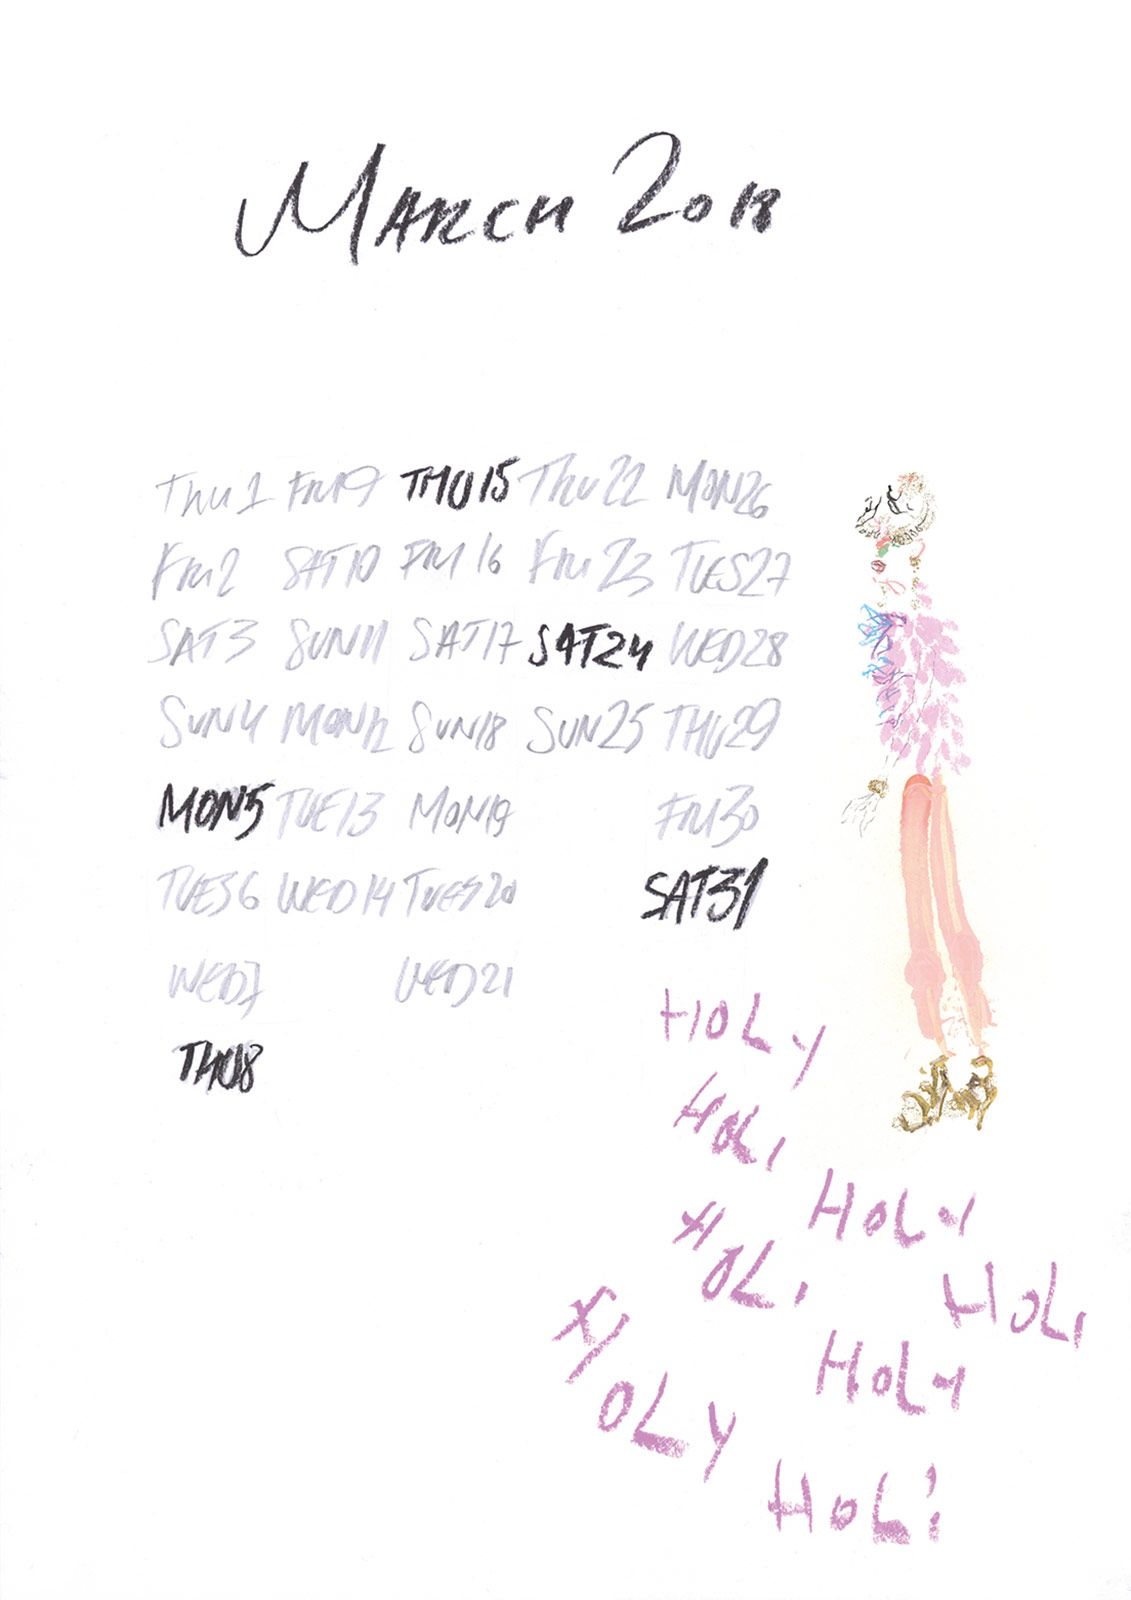 MARCH 2018
THU 1 FRI 9 THU 15 THU 22 MON 26
FRI 2 SAT 10 FRI 16 FRI 23 TUES 27
SAT 3 SUN 11 SAT 17 SAT 24 WED 28
SUN 4 MON 12 SUN 18 SUN 25 THU 29
MON 5 TUE 13 MON 19 FRI 30
TUES 6 WED 14 TUES 20 SAT 31
WED 7 WED 21
THU 8
HOLY
HOLI
HOLY
HOLI
HOLI
HOLY
HOLY
HOLI